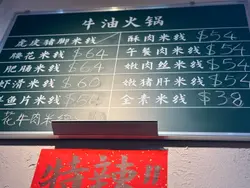 牛油火锅
虎皮猪脚米线
酥肉米线 $54
腰花米线 $64
午餐肉米线 $54
肥肠米线 $64
嫩肉丝米线 $54
虾滑米线 $60
嫩猪肝米线 $54
鱼片米线 $58
全素米线 $38
花牛肉米线
特辣